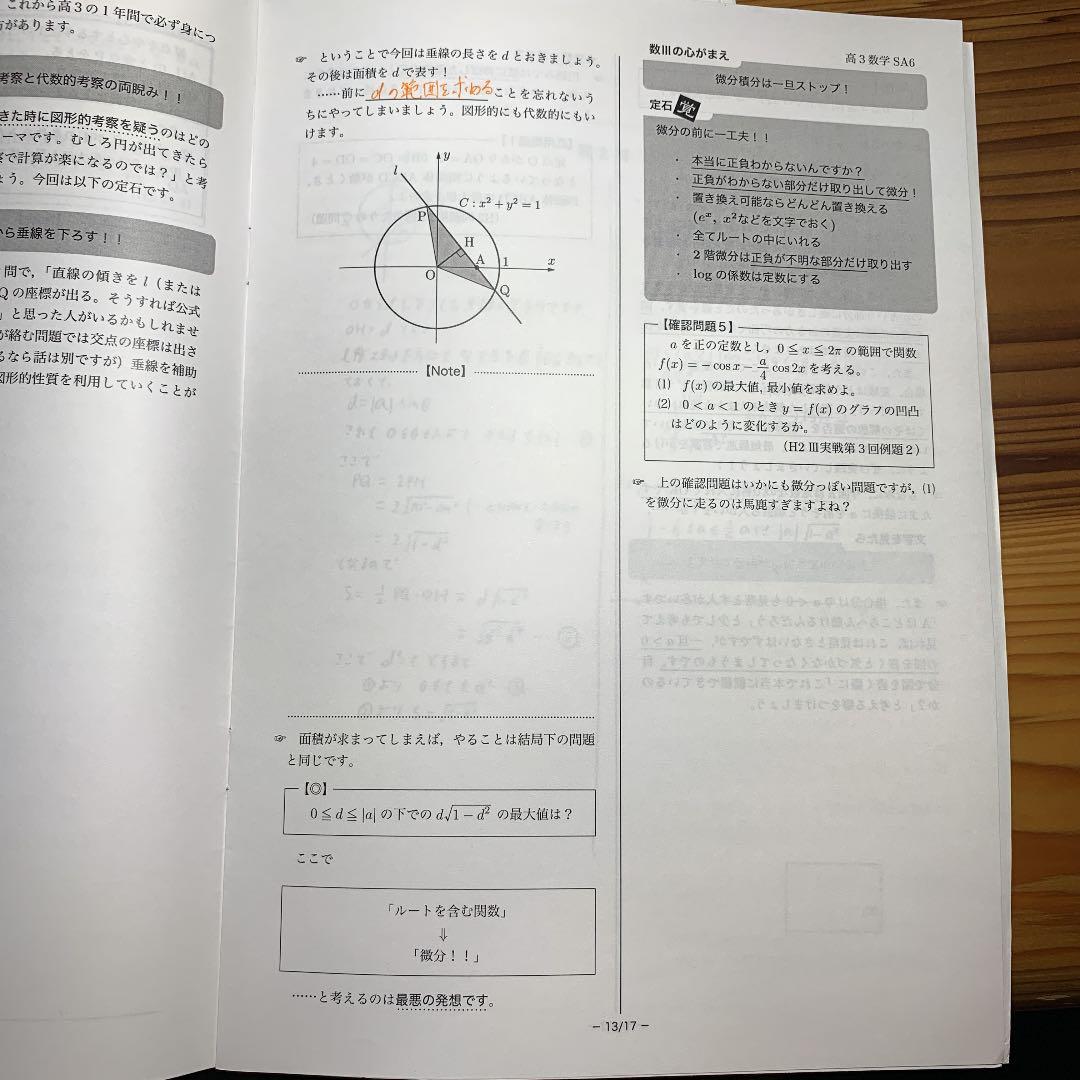 これから高3の1年間で必ず身につ
があります。
考察と代数的考察の両睨み！！
きた時に図形的考察を疑うのはどの
ーマです。むしろ円が出てきたら
察で計算が楽になるのでは？」と考
ょう。今回は以下の定石です。
から垂線を下ろす！！
問で，「直線の傾きを l（または
Qの座標が出る。そうすれば公式
」と思った人がいるかもしれませ
が絡む問題では交点の座標は出さ
るなら話は別ですが）垂線を補助
図形的性質を利用していくことが
☞ ということで今回は垂線の長さを d とおきましょう。
その後は面積を d で表す！
……前に dの範囲を求める ことを忘れないう
ちにやってしまいましょう。図形的にも代数的にもい
けます。
y
l
C : x² + y² = 1
P
H
A
1
x
O
Q
【Note】
☞ 面積が求まってしまえば，やることは結局下の問題
と同じです。
【◎】
0 ≦ d ≦ |a| の下での d√(1 − d²) の最大値は？
ここで
「ルートを含む関数」
⇓
「微分！！」
……と考えるのは最悪の発想です。
数Ⅲの心がまえ
高3数学 SA6
微分積分は一旦ストップ！
定石 覚
微分の前に一工夫！！
・ 本当に正負わからないんですか？
・ 正負がわからない部分だけ取り出して微分！
・ 置き換え可能ならどんどん置き換える
(eˣ, x²などを文字でおく)
・ 全てルートの中にいれる
・ 2階微分は正負が不明な部分だけ取り出す
・ log の係数は定数にする
【確認問題5】
a を正の定数とし，0 ≦ x ≦ 2π の範囲で関数
f(x) = − cos x − a/4 cos 2x を考える。
(1) f(x) の最大値, 最小値を求めよ。
(2) 0 < a < 1 のとき y = f(x) のグラフの凹凸
はどのように変化するか。
（H2 Ⅲ実戦第3回例題2）
☞ 上の確認問題はいかにも微分っぽい問題ですが，(1)
を微分に走るのは馬鹿すぎますよね？
− 13/17 −